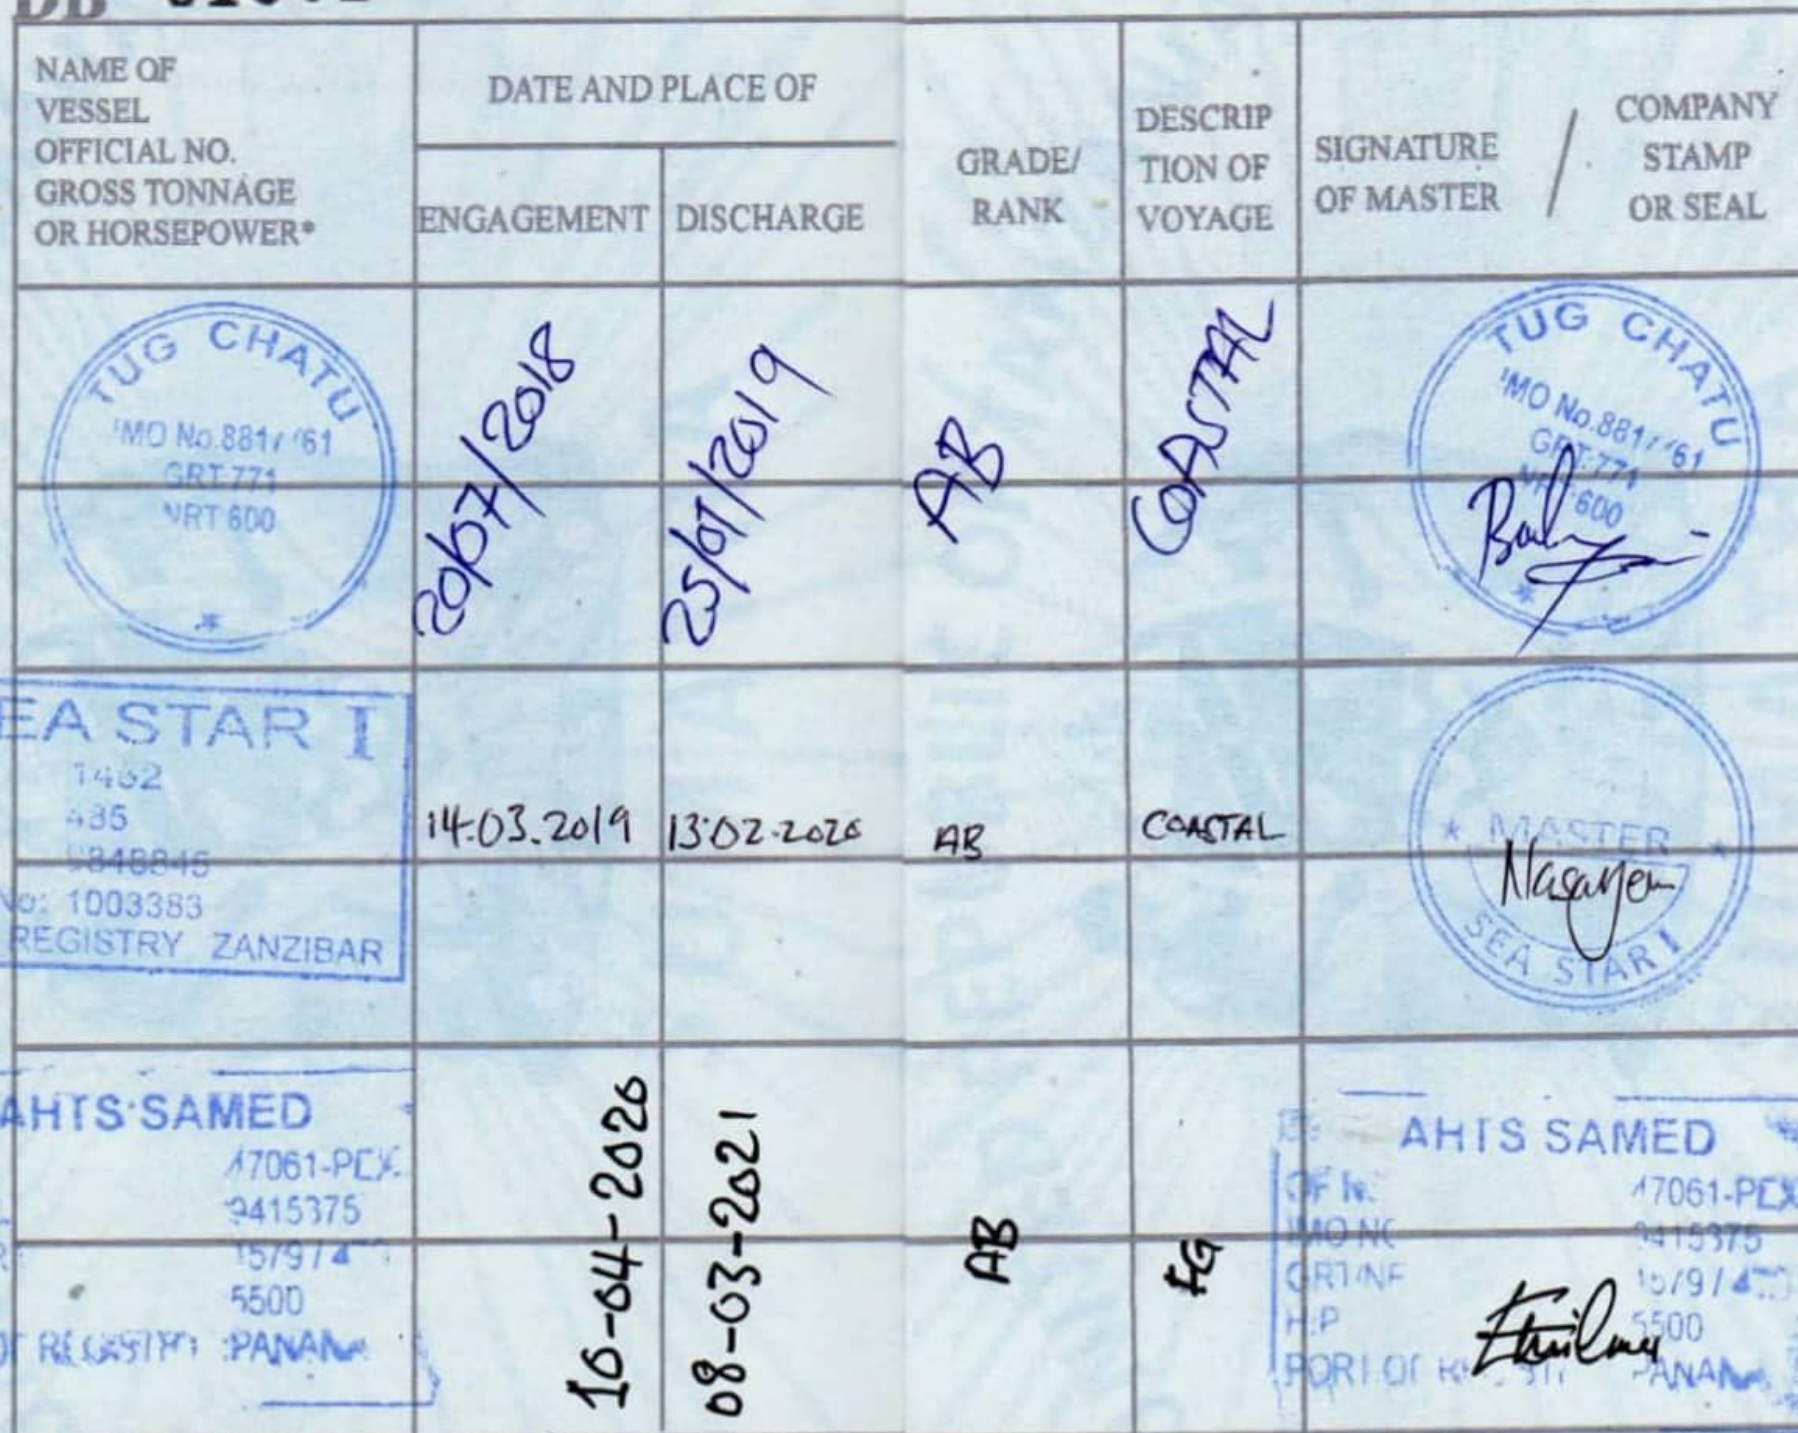 DB
NAME OF
VESSEL
OFFICIAL NO.
GROSS TONNAGE
OR HORSEPOWER*
DATE AND PLACE OF
ENGAGEMENT
DISCHARGE
GRADE/
RANK
DESCRIP
TION OF
VOYAGE
SIGNATURE
OF MASTER
/
COMPANY
STAMP
OR SEAL
TUG CHATU
IMO No.881
61
GRT-771
NRT 600
20/07/2018
25/01/2019
AB
COASTAL
TUG CHATU
IMO No.881
61
GRT-771
600
EA STAR I
No: 1003383
REGISTRY ZANZIBAR
14.03.2019
13.02.2020
AB
COASTAL
MASTER
SEA STAR I
AHTS SAMED
47061-PEX
9415375
5500
PANAMA
10-04-2020
08-03-2021
AB
FG
AHTS SAMED
47061-PEX
IMO NO
9415375
GRT/NR
H.P
5500
PORT OF
PANAMA